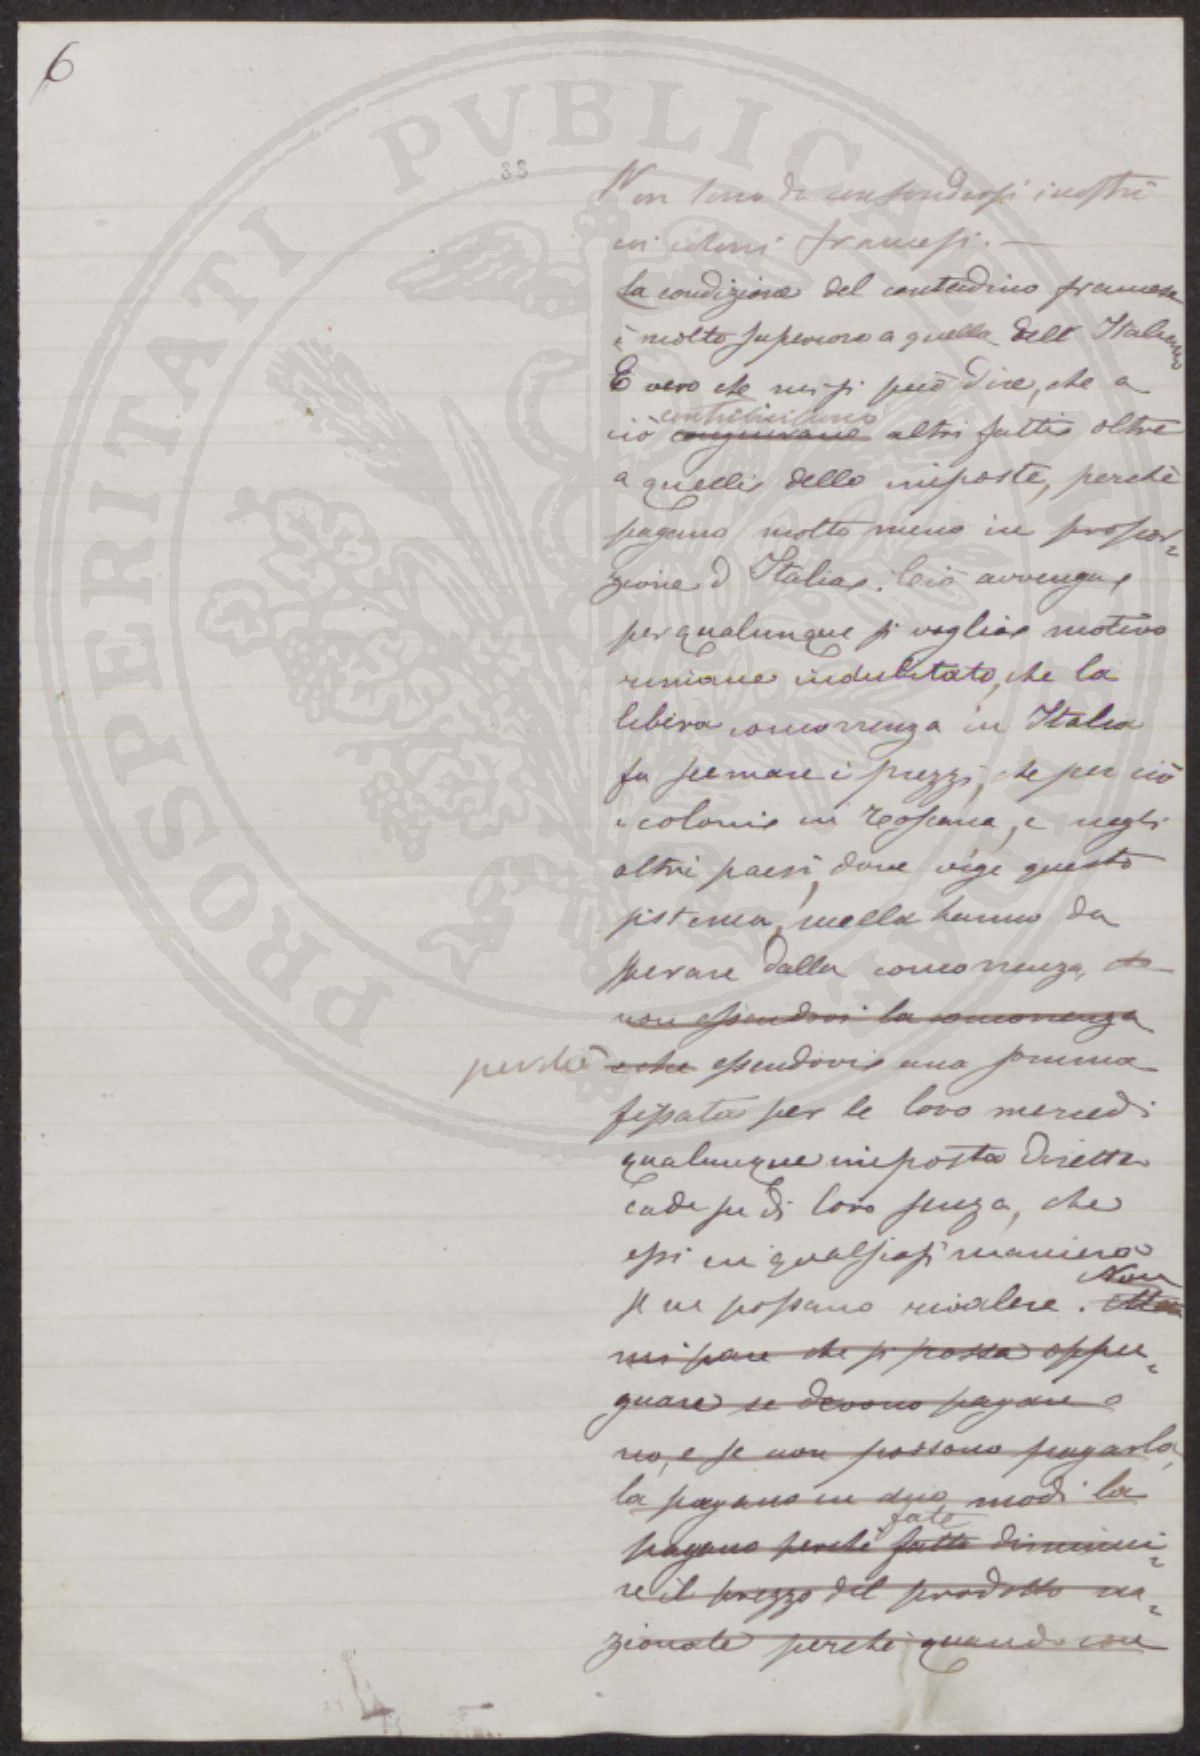 6
33
Non sono da confondersi i nostri
coi coloni francesi. —
La condizione del contadino francese
è molto superiore a quella dell' Italiano
E vero che mi si può dire, che a
contribuiscono
ciò congiurano altri fatti oltre
a quelli delle imposte, perchè
pagano molto meno in propor=
zione d' Italia. Ciò avvenga,
per qualunque si voglia motivo
rimane indubitato, che la
libera concorrenza in Italia
fa scemare i prezzi, che per ciò
i coloni in Toscana, e negli
altri paesi, dove vige questo
sistema, nulla hanno da
sperare dalla concorrenza,
non essendovi la concorrenza
perchè e che essendovi una somma
fissata per le loro mercedi
qualunque imposta diretta
cade su di loro senza, che
essi in qualsiasi maniera
se ne possano rivalere. Non
mi pare che si possa oppu=
gnare se devono pagare o
no, e se non possono pagarla,
la pagano in due modi la
fate
pagano perchè fatto diminui=
re il prezzo del prodotto na=
zionale perchè quando con
PROSPERITATI PVBLICAE